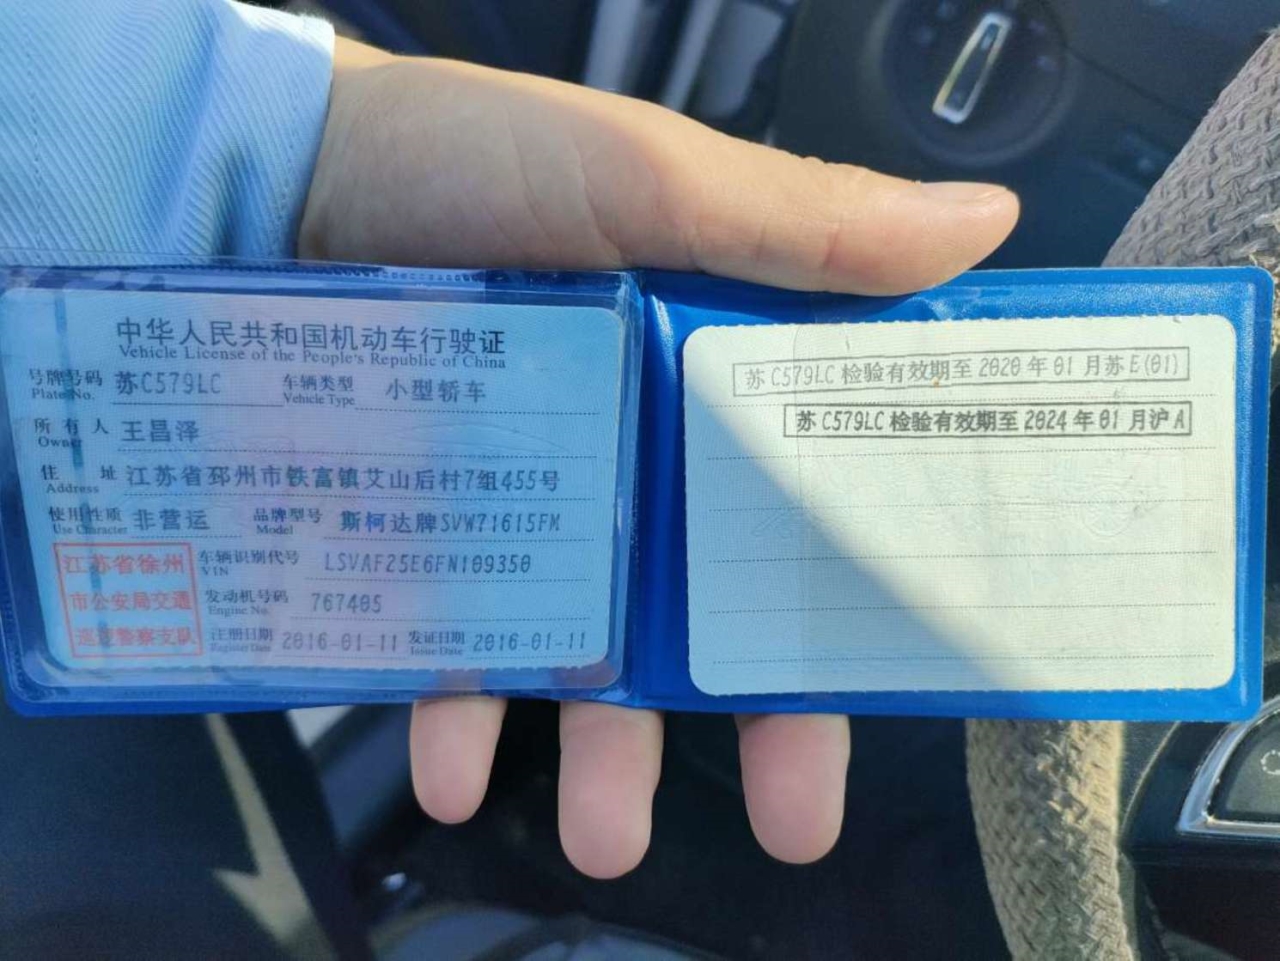 中华人民共和国机动车行驶证
Vehicle License of the People's Republic of China
号牌号码 苏C579LC 车辆类型 小型轿车
Plate No. Vehicle Type
所有人 王昌泽
Owner
住址 江苏省邳州市铁富镇艾山后村7组455号
Address
使用性质 非营运 品牌型号 斯柯达牌SVW71615FM
Use Character Model
江苏省徐州
市公安局交通
巡逻警察支队
车辆识别代号 LSVAF25E6FN109350
VIN
发动机号码 767405
Engine No.
注册日期 2016-01-11 发证日期 2016-01-11
Register Date Issue Date
苏C579LC检验有效期至2020年01月苏E(01)
苏C579LC检验有效期至2024年01月沪A